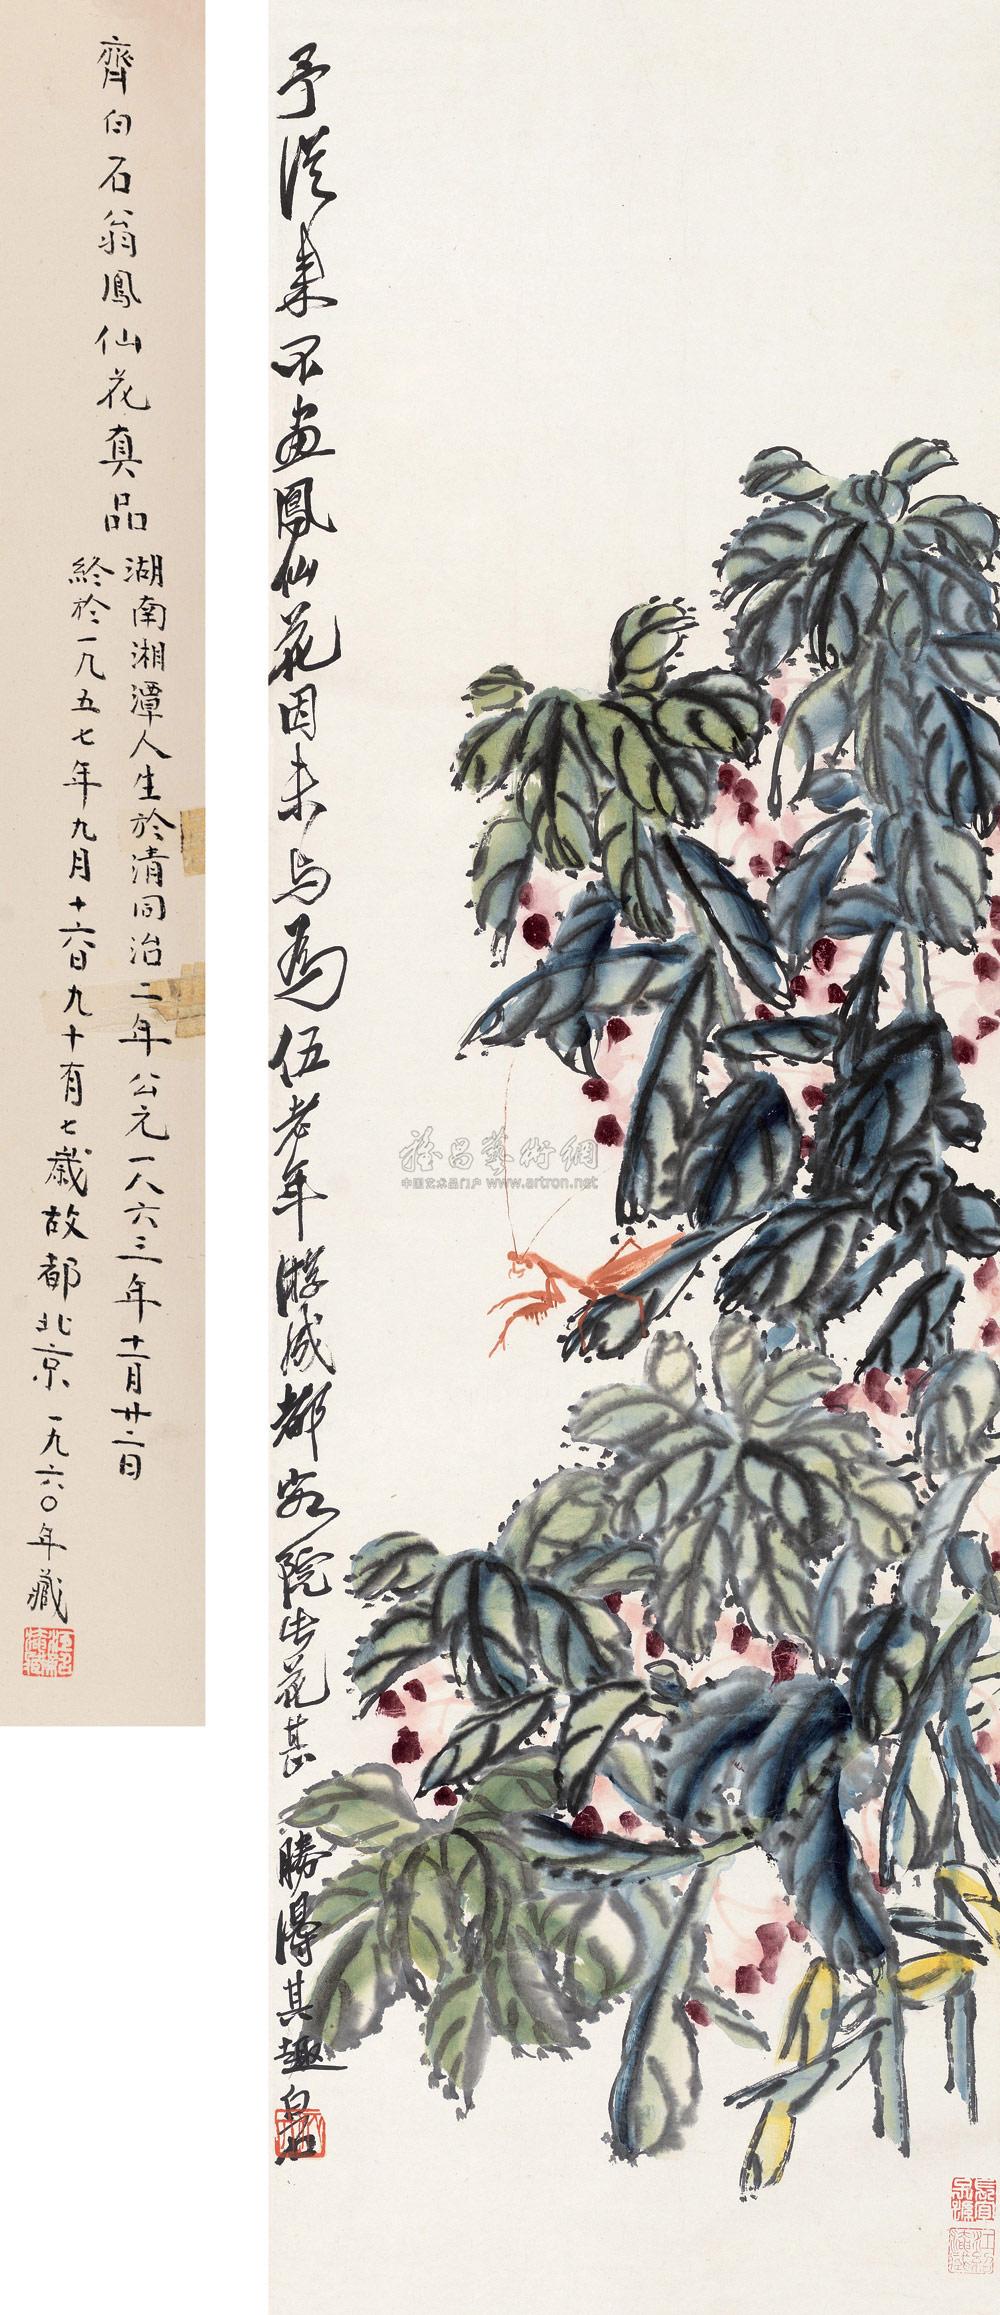 予從來不畫鳳仙花因未與為伍老年游成都客院此花甚勝得其趣白石
齊白石翁鳳仙花真品
湖南湘潭人生於清同治二年公元一八六三年十一月廿二日
終於一九五七年九月十六日九十有七歲故都北京 一九六〇年藏
雅昌藝術網
中国艺术品门户 www.artron.net